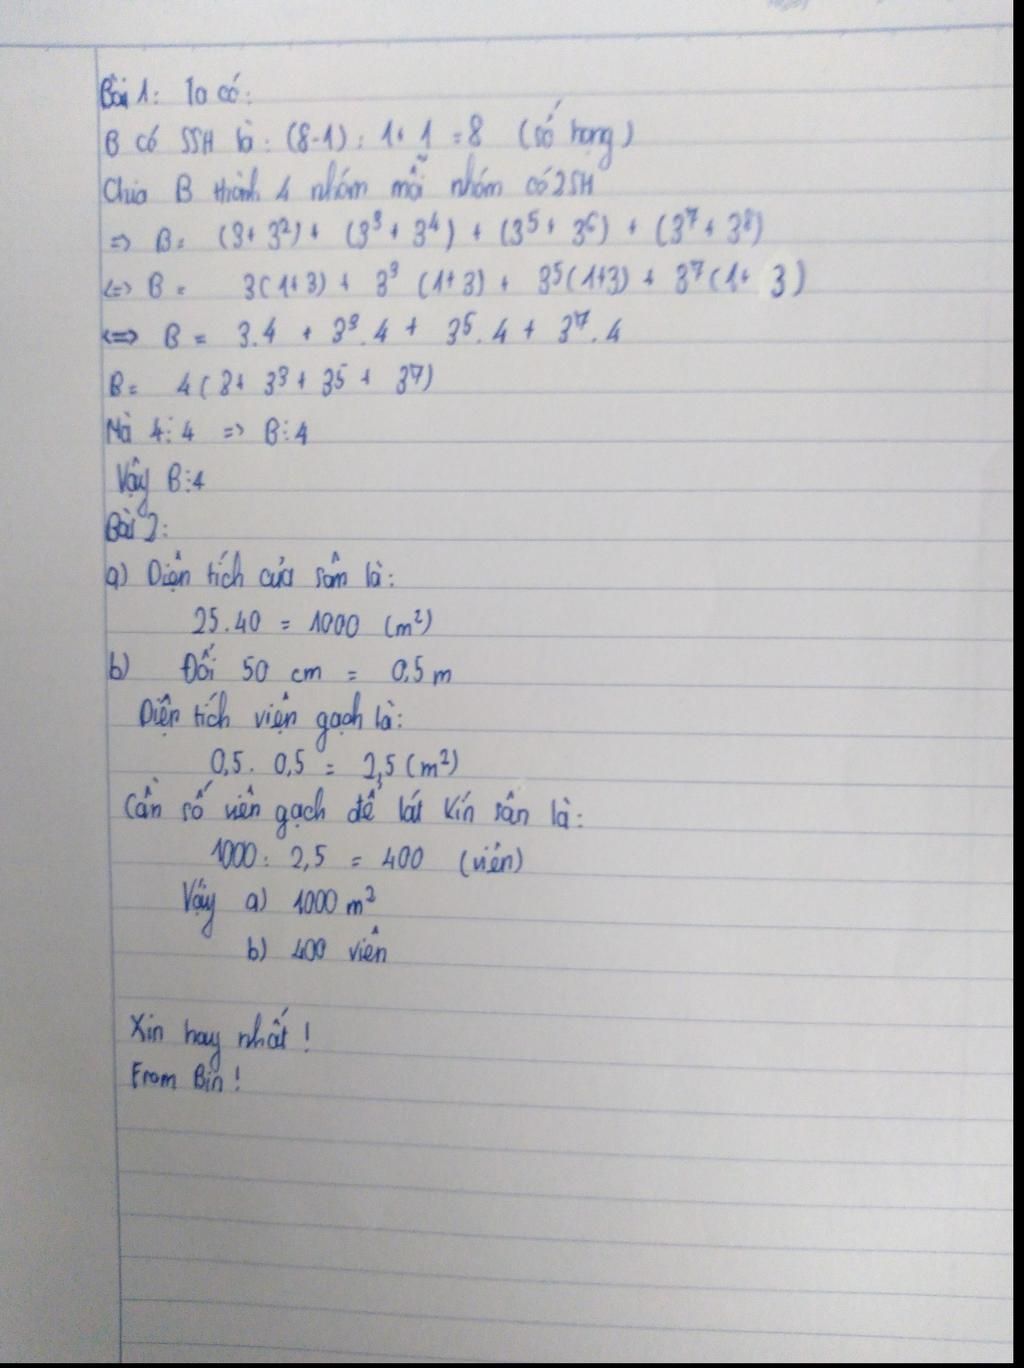 Bài 1: Ta có:
B có SSH là: (8-1) : 1+ 1 = 8 (số hạng)
Chia B thành 4 nhóm mỗi nhóm có 2SH
=> B = (3+ 3²) + (3³ + 3⁴) + (3⁵ + 3⁶) + (3⁷ + 3⁸)
<=> B = 3(1+3) + 3³ (1+3) + 3⁵(1+3) + 3⁷(1+ 3)
<=> B = 3.4 + 3³.4 + 3⁵.4 + 3⁷.4
B = 4(3+ 3³ + 3⁵ + 3⁷)
Mà 4⋮4 => B⋮4
Vậy B⋮4
Bài 2:
a) Diện tích của sân là:
25.40 = 1000 (m²)
b) Đổi 50 cm = 0,5m
Diện tích viên gạch là:
0,5. 0,5 = 2,5 (m²)
Cần số viên gạch để lát kín sân là:
1000 : 2,5 = 400 (viên)
Vậy a) 1000 m²
b) 400 viên
Xin hay nhất !
From Bin !